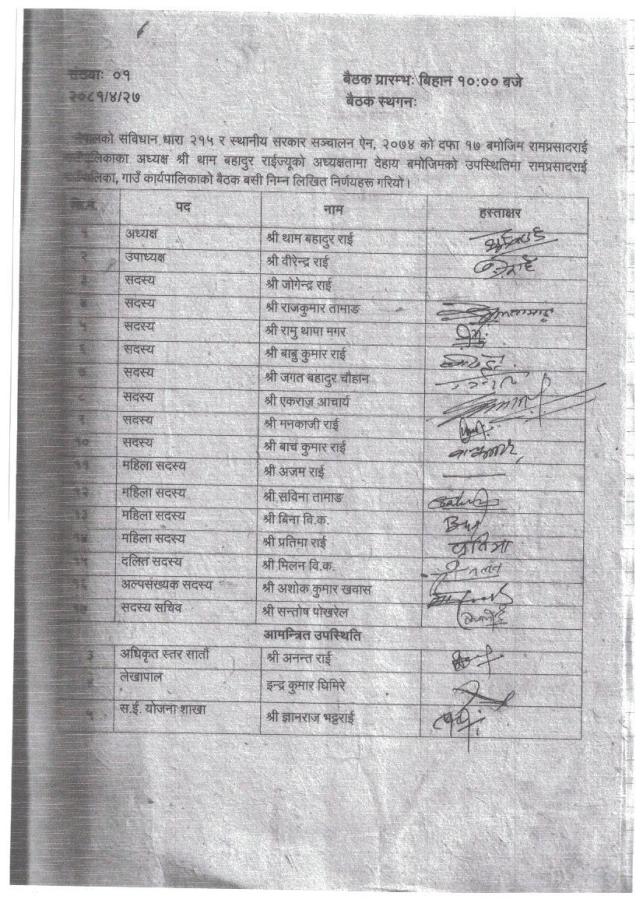 संख्याः ०१ बैठक प्रारम्भः बिहान १०:०० बजे
२०८१/४/२७ बैठक स्थगनः
नेपालको संविधान धारा २१५ र स्थानीय सरकार सञ्चालन ऐन, २०७४ को दफा १७ बमोजिम रामप्रसादराई
गाउँपालिकाका अध्यक्ष श्री थाम बहादुर राईज्यूको अध्यक्षतामा देहाय बमोजिमको उपस्थितिमा रामप्रसादराई
गाउँपालिका, गाउँ कार्यपालिकाको बैठक बसी निम्न लिखित निर्णयहरू गरियो।
पद नाम हस्ताक्षर
१ अध्यक्ष श्री थाम बहादुर राई
२ उपाध्यक्ष श्री वीरेन्द्र राई
३ सदस्य श्री जोगेन्द्र राई
४ सदस्य श्री राजकुमार तामाङ
५ सदस्य श्री रामु थापा मगर
६ सदस्य श्री बाबु कुमार राई
७ सदस्य श्री जगत बहादुर चौहान
८ सदस्य श्री एकराज आचार्य
९ सदस्य श्री मनकाजी राई
१० सदस्य श्री बाच कुमार राई
११ महिला सदस्य श्री अजम राई
१२ महिला सदस्य श्री सविना तामाङ
१३ महिला सदस्य श्री बिना वि.क.
१४ महिला सदस्य श्री प्रतिमा राई प्रतिमा
१५ दलित सदस्य श्री मिलन वि.क.
१६ अल्पसंख्यक सदस्य श्री अशोक कुमार खवास
१७ सदस्य सचिव श्री सन्तोष पोखरेल
आमन्त्रित उपस्थिति
३ अधिकृत स्तर सातौं श्री अनन्त राई
लेखापाल इन्द्र कुमार घिमिरे
५ स.ई. योजना शाखा श्री ज्ञानराज भट्टराई